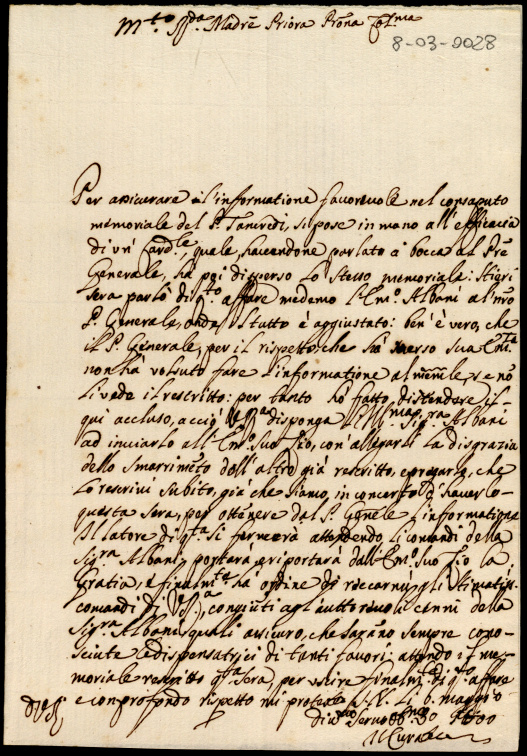 M.to R.da Madre Priora Pr̃ona Col.ma
8-03-0028
Per assicurare l'informatione favorevole nel consaputo
memoriale del P. Tancredi, si pose in mano all'efficacia
di un Card.le, quale, havendone parlato à bocca al Pr̃e
Generale, hà poi disperso lo stesso memoriale: Hieri
sera parlò di q.to affare medemo l'Em.o Albani al n̄ro
P. Generale, onde il tutto è aggiustato: ben'è vero, che
il P. Generale, per il rispetto, che hà verso sua Em.za
non hà volsuto fare l'informatione al se nõ
li vede il rescritto: per tanto hò fatto distendere il
qui accluso, acciò disponga Sig.ra Albani
ad inviarlo all'Em.o suo Zio, con allegarli la disgratia
dello smarrimẽto dell'altro già rescritto, e pregarlo, che
lo rescrivi subito, già che siamo in concerto d'haverlo
questa sera, per ottenere dal P. Gen̄le l'informatione
Il latore di q.ta si fermerà attendendo li comandi della
Sig.ra Albani, porterà, e riporterà dall'Em.o suo Zio la
gratia, e finalm.te hà ordine di recarmi gli stimatiss.i
comandi di V.S., congiunti agl'autorevoli cenni della
Sig.ra Albani, quali assicuro, che sarano sempre cono-
sciute dispensatrici di tanti favori: attendo il me-
moriale rescritto q.ta sera, per uscire finalm.te di q.to affare
e con profondo rispetto mi protesto li 6. maggio
di V.S.